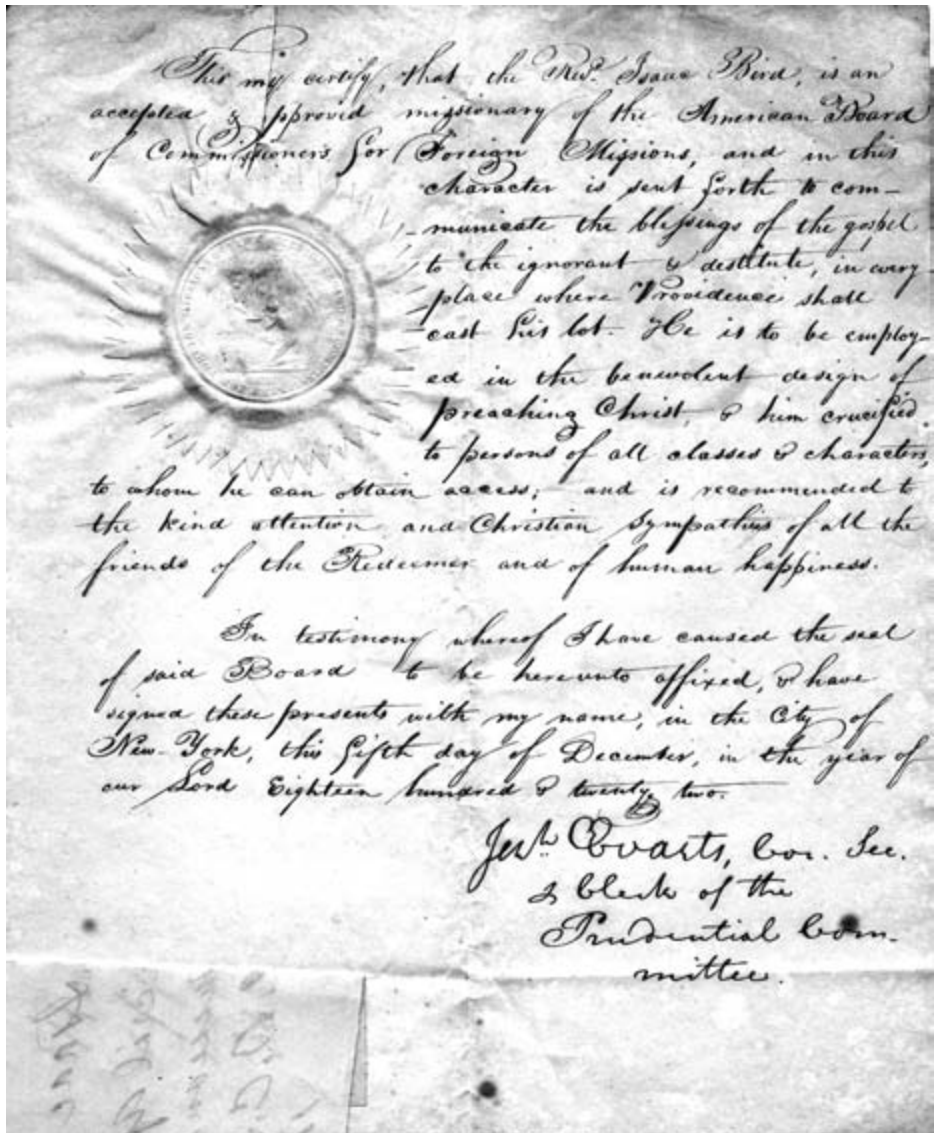 This may certify, that the Revd. Isaac Bird, is an
accepted & approved missionary of the American Board
of Commissioners for Foreign Missions, and in this
character is sent forth to com-
municate the blessings of the gospel
to the ignorant & destitute, in every
place where Providence shall
cast his lot. He is to be employ-
ed in the benevolent design of
preaching Christ, & him crucified
to persons of all classes & characters,
to whom he can obtain access; and is recommended to
the kind attention and Christian sympathies of all the
friends of the Redeemer and of human happiness.
In testimony whereof I have caused the seal
of said Board to be hereunto affixed, & have
signed these presents with my name, in the City of
New-York, this fifth day of December, in the year of
our Lord Eighteen hundred & twenty two.
Jerh. Evarts, Cor. Sec.
& Clerk of the
Prudential Com-
mittee.